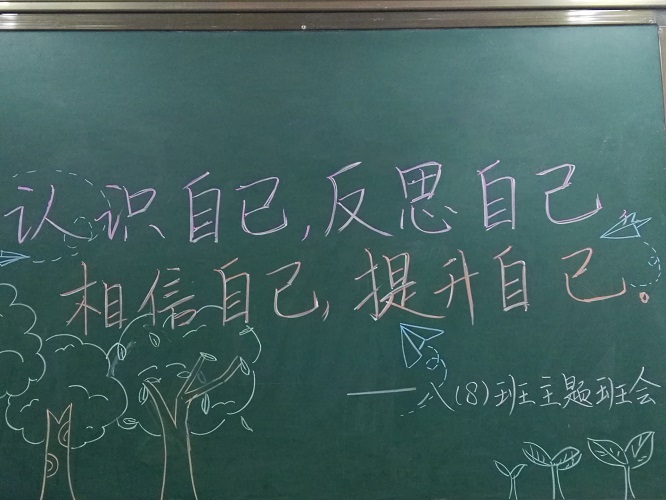 认识自己,反思自己,
相信自己,提升自己。
——八(8)班主题班会